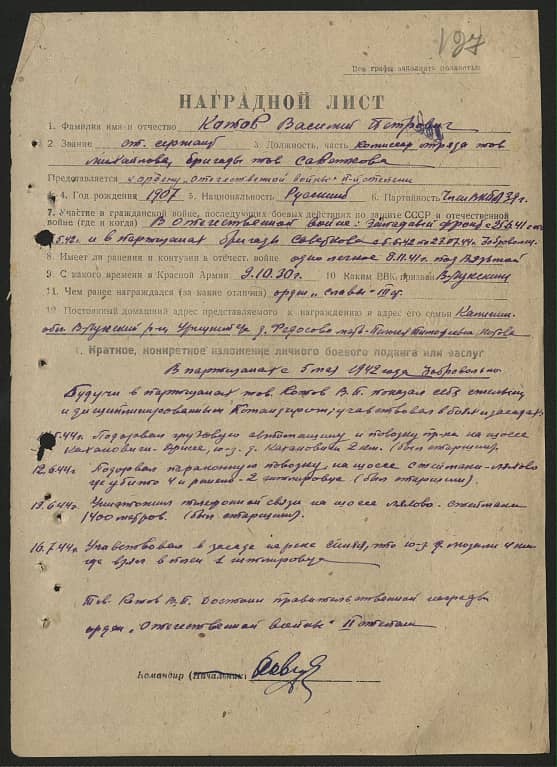 197
Все графы заполнять полностью
НАГРАДНОЙ ЛИСТ
1. Фамилия имя и отчество Котов Василий Петрович
2. Звание ст. сержант 3. Должность, часть Комиссар отряда тов
Михайлова, бригады тов
Представляется к ордену „Отечественной войны" II-й степени
4. Год рождения 1907 5. Национальность Русский 6. Партийность Член ВКПб
7. Участие в гражданской войне, последующих боевых действиях по защите СССР и отечественной
войне (где и когда) В Отечественной войне: Западный фронт с
5.42. и в партизанах бригады с 5.5.42 по 23.07.44.
8. Имеет ли ранения и контузии в отечест. войне одно легкое 8.11.41 под
9. С какого времени в Красной Армии 9.10.30г. 10. Каким РВК призван В-Лукским
11. Чем ранее награждался (за какие отличия) орден „Славы"
10. Постоянный домашний адрес представляемого к награждению и адрес его семьи Калинин.
обл. В-Лукский р-н, д. Федосово Котова
1. Краткое, конкретное изложение личного боевого подвига или заслуг
В партизанах с 5 мая 1942 года добровольно.
Будучи в партизанах тов. Котов В.П. показал себя смелым
и дисциплинированным Командиром, участвовал в боях и засадах.
5.44г. Подорвал грузовую автомашину и повозку пр-ка на шоссе
Каханович ю-з. д. Каханович 2 км. (был старшим).
12.6.44г. Подорвал пароконную повозку на шоссе
где убито 4 и ранено 2 гитлеровца (был старшим).
13.6.44г. Уничтожил телефонной связи на шоссе
1400 метров. (был старшим).
16.7.44г. Участвовал в засаде на реке что ю-з д. 4 км
где взял в плен 1 гитлеровца
Тов. Котов В.П. Достоин правительственной награды
орден „Отечественной войны" II степени
Командир (Начальник)